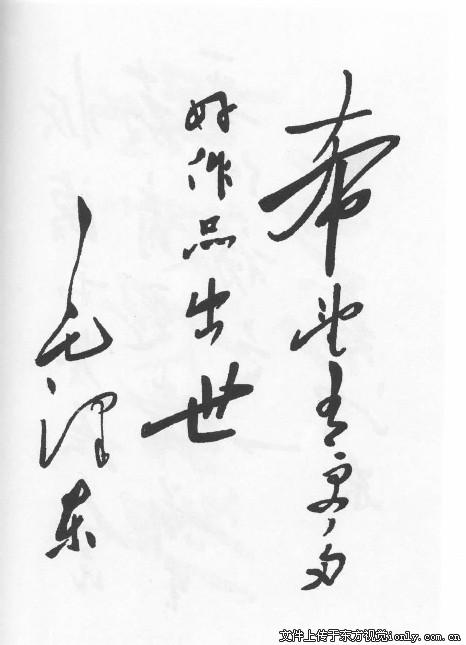 希望有更多
好作品出世
毛泽东
文件上传于东方视觉ionly.com.cn